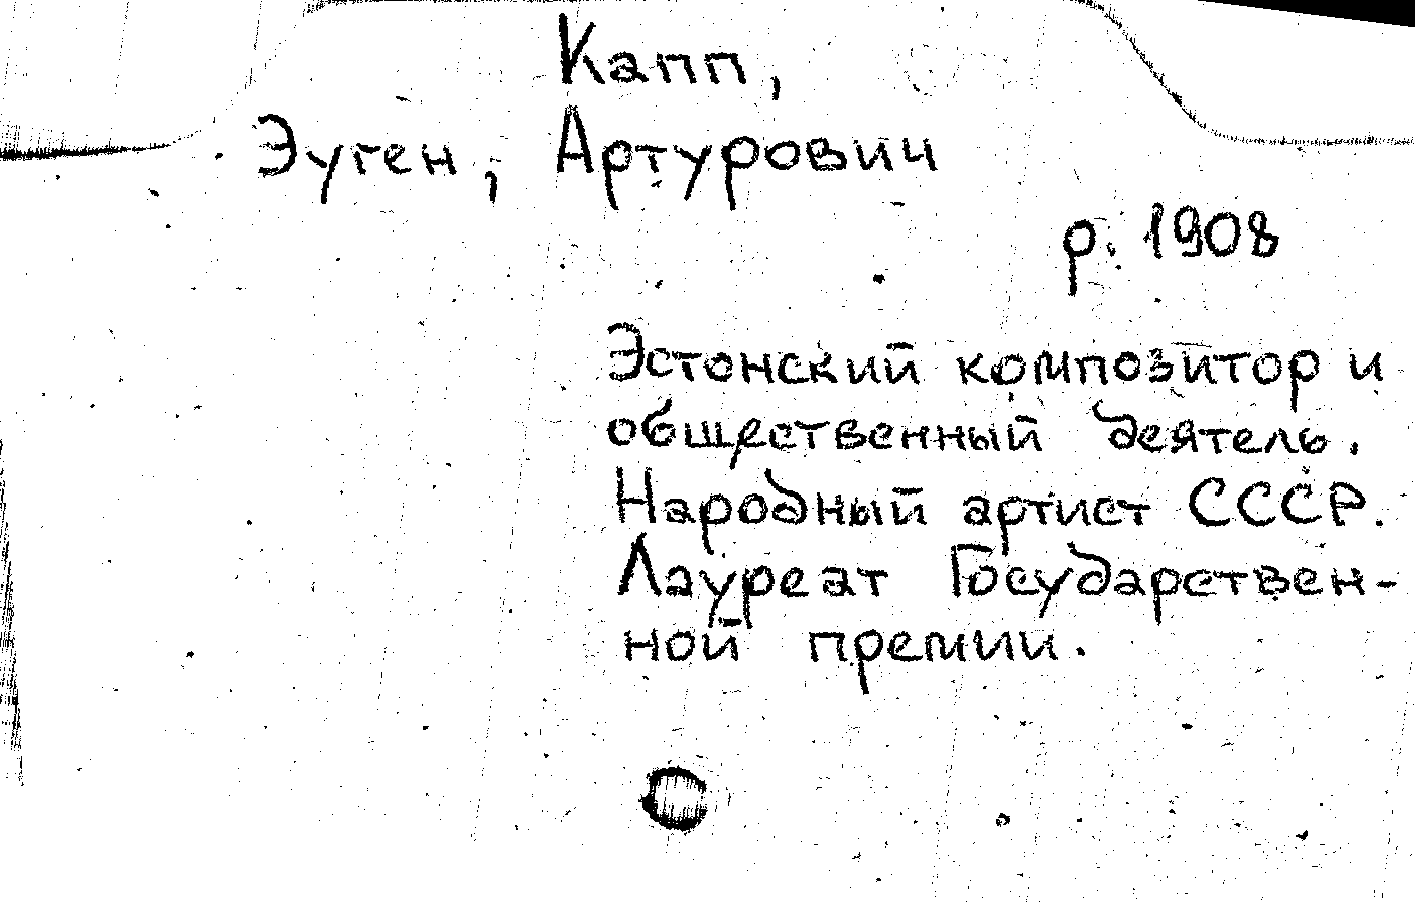 Капп,
Эуген, Артурович
р. 1908
Эстонский композитор и
общественный деятель.
Народный артист СССР.
Лауреат Государствен-
ной премии.